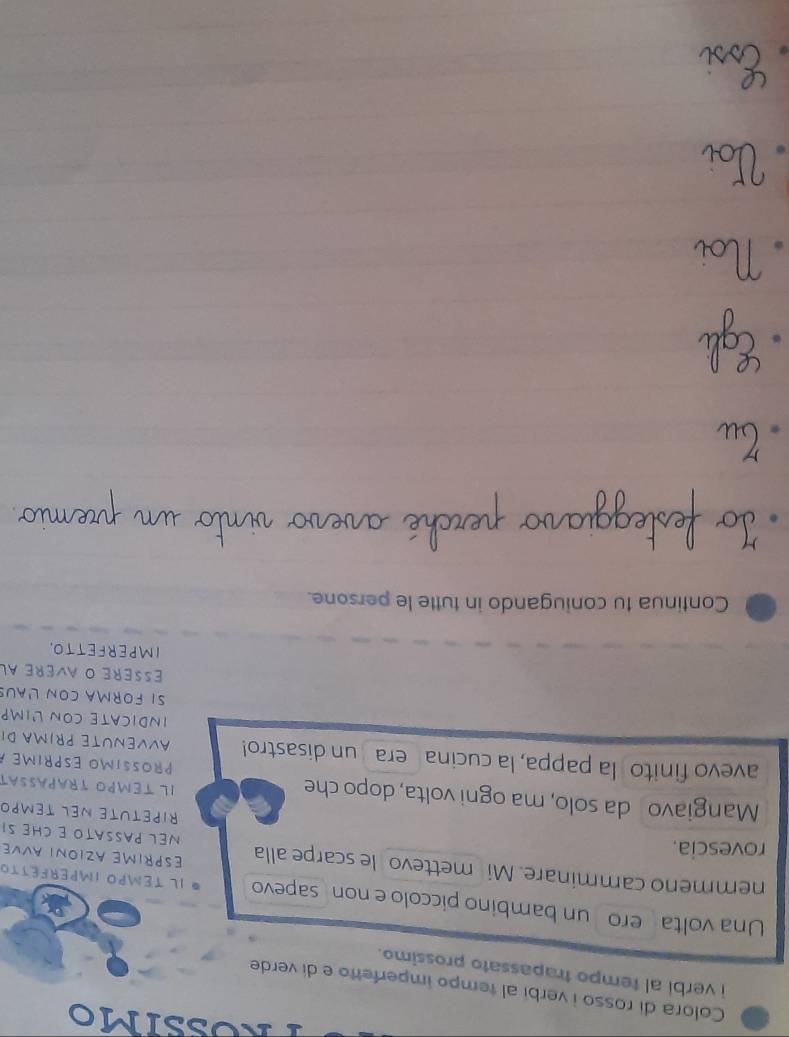 ROSSIMO
Colora di rosso i verbi al tempo imperfetto e di verde
i verbi al tempo trapassato prossimo.
Una volta ero un bambino piccolo e non sapevo
nemmeno camminare. Mi mettevo le scarpe alla
rovescia.
Mangiavo da solo, ma ogni volta, dopo che
avevo finito la pappa, la cucina era un disastro!
• IL TEMPO IMPERFETTO
ESPRIME AZIONI AVVE
NEL PASSATO E CHE SI
RIPETUTE NEL TEMPO
IL TEMPO TRAPASSAT
PROSSIMO ESPRIME A
AVVENUTE PRIMA DI
INDICATE CON L'IMP
SI FORMA CON L'AUS
ESSERE O AVERE AL
IMPERFETTO.
Continua tu coniugando in tutte le persone.
• Io festeggiavo perché avevo vinto un premio.
• Tu
• Egli
• Noi
• Voi
• Essi